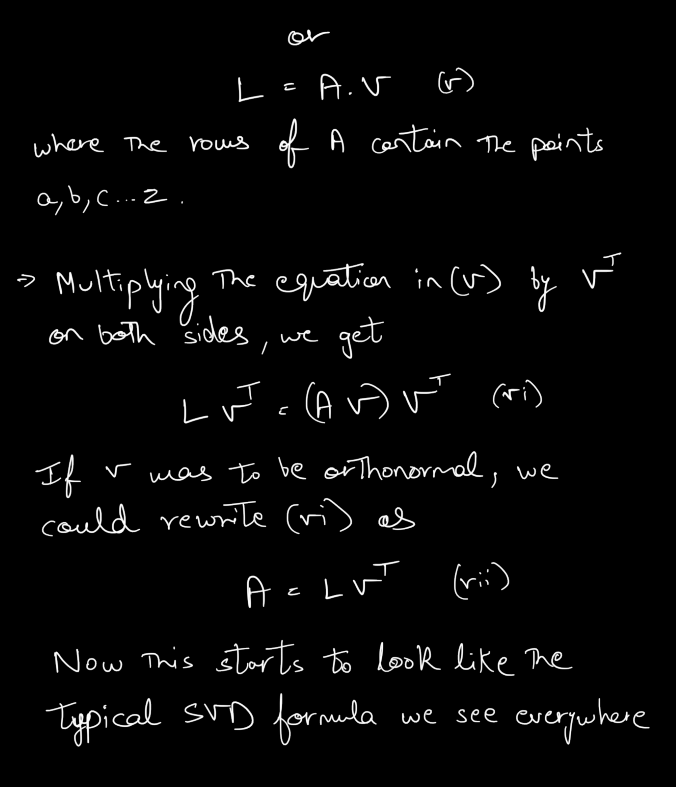 or
L = A.V (v)
where the rows of A contain the points
a, b, c ... z.
→ Multiplying the equation in (v) by Vᵀ
on both sides, we get
L Vᵀ = (A V) Vᵀ (vi)
If V was to be orthonormal, we
could rewrite (vi) as
A = L Vᵀ (vii)
Now this starts to look like the
typical SVD formula we see everywhere